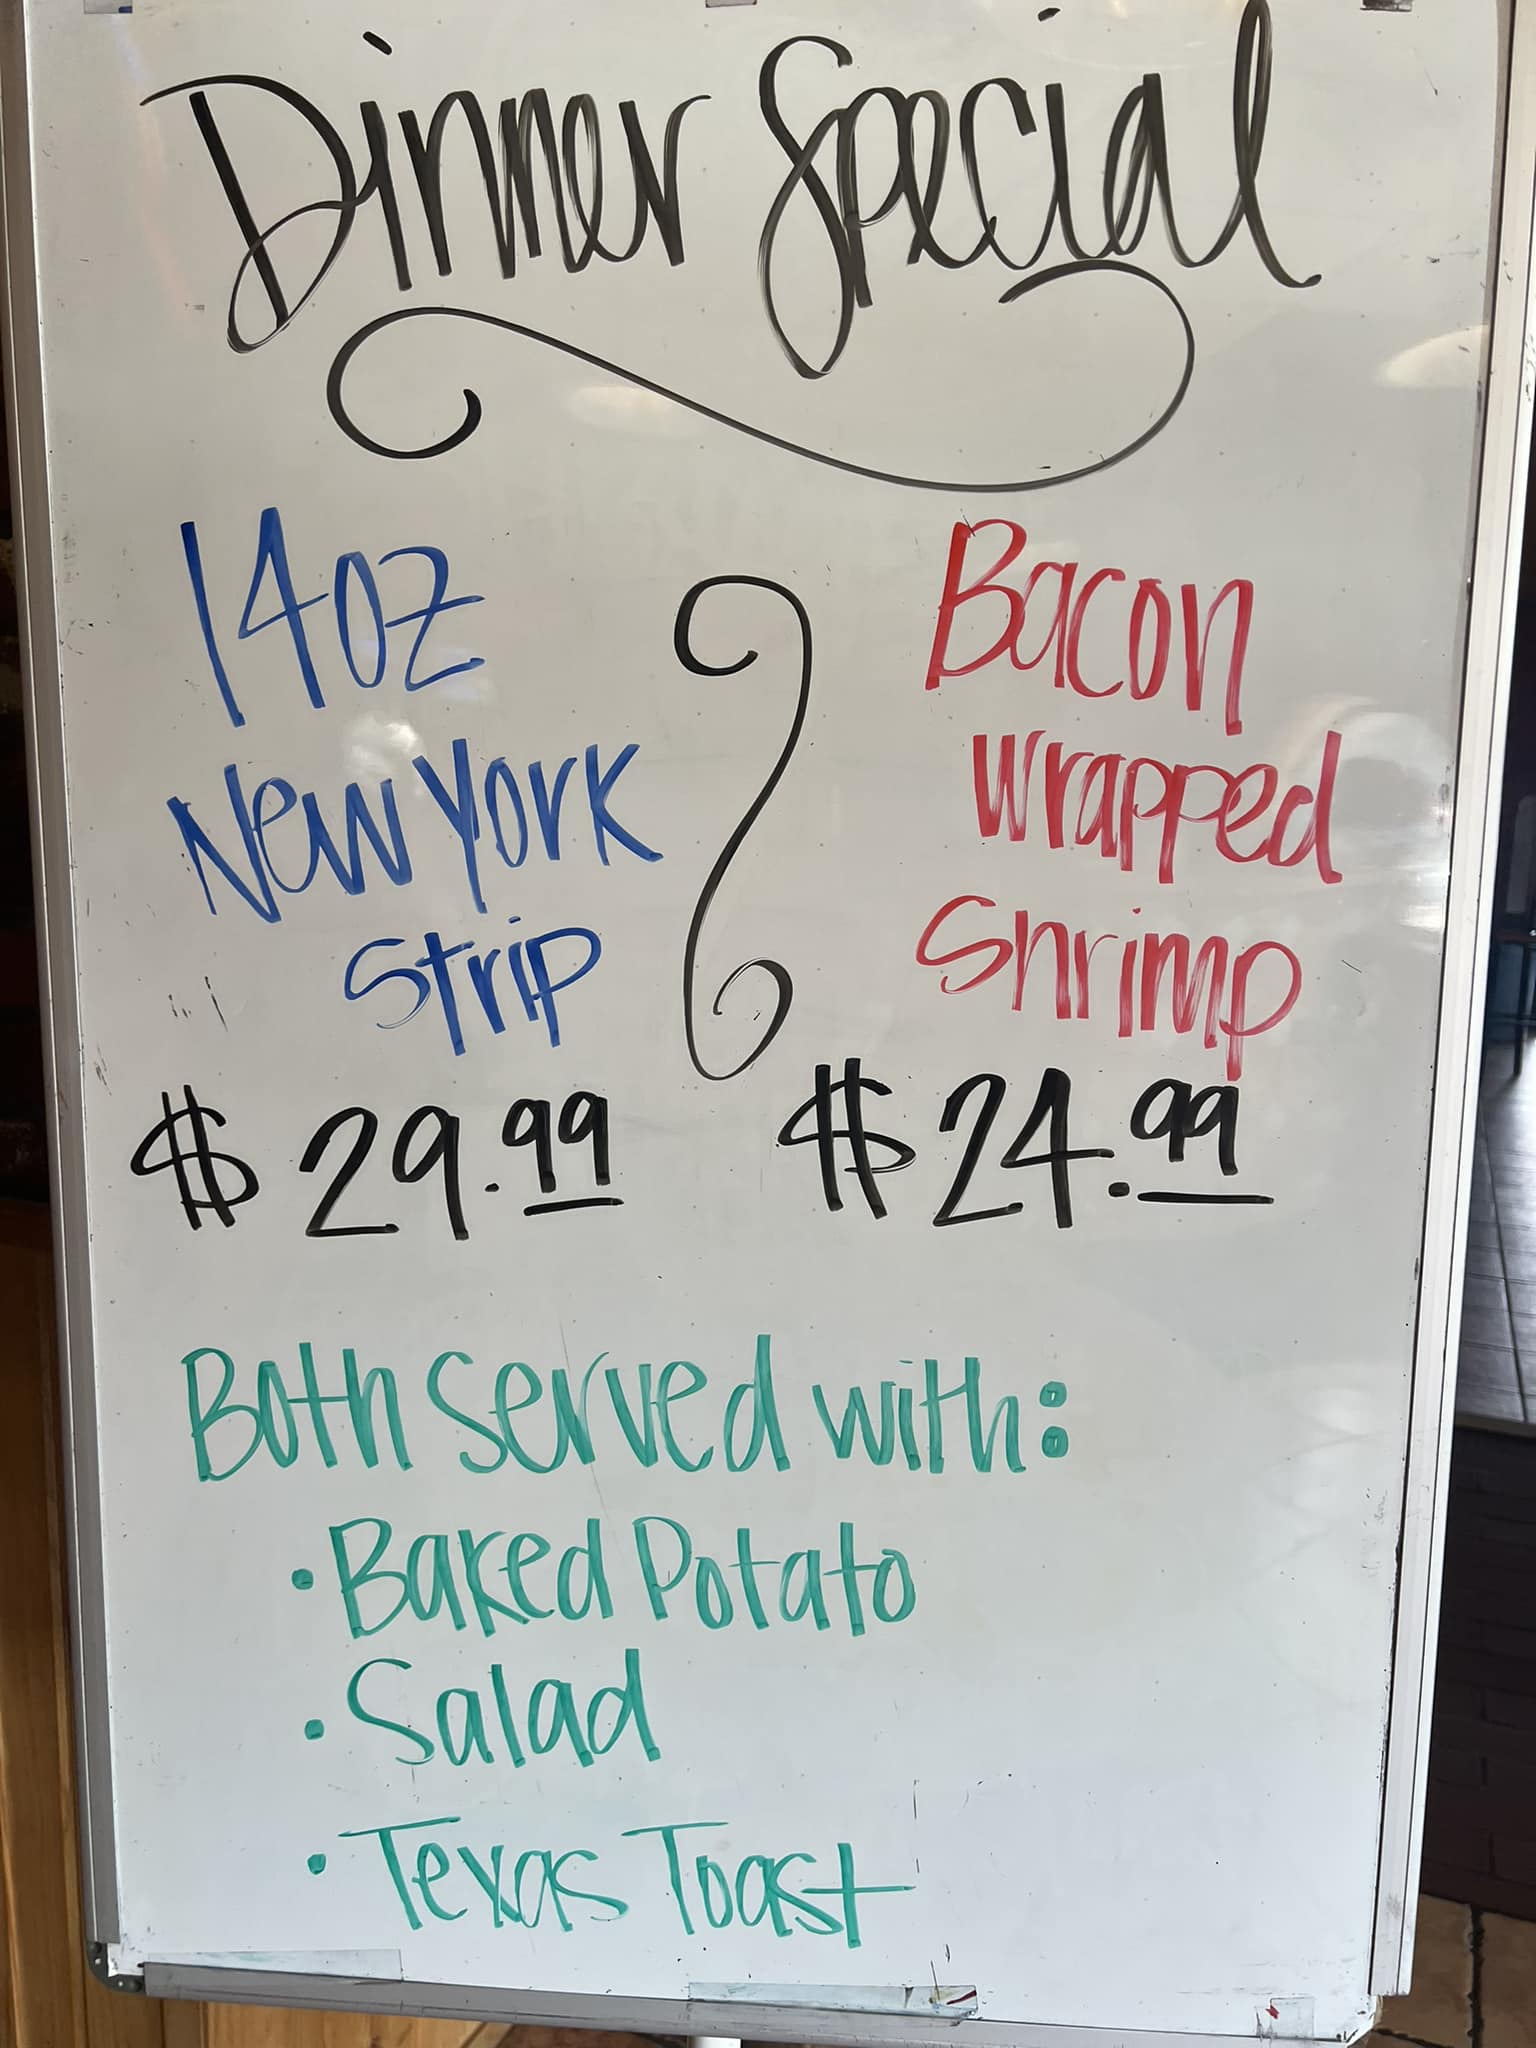 Dinner Special
14oz
New York
Strip
$29.99
Bacon
Wrapped
Shrimp
$24.99
Both served with:
• Baked Potato
• Salad
• Texas Toast